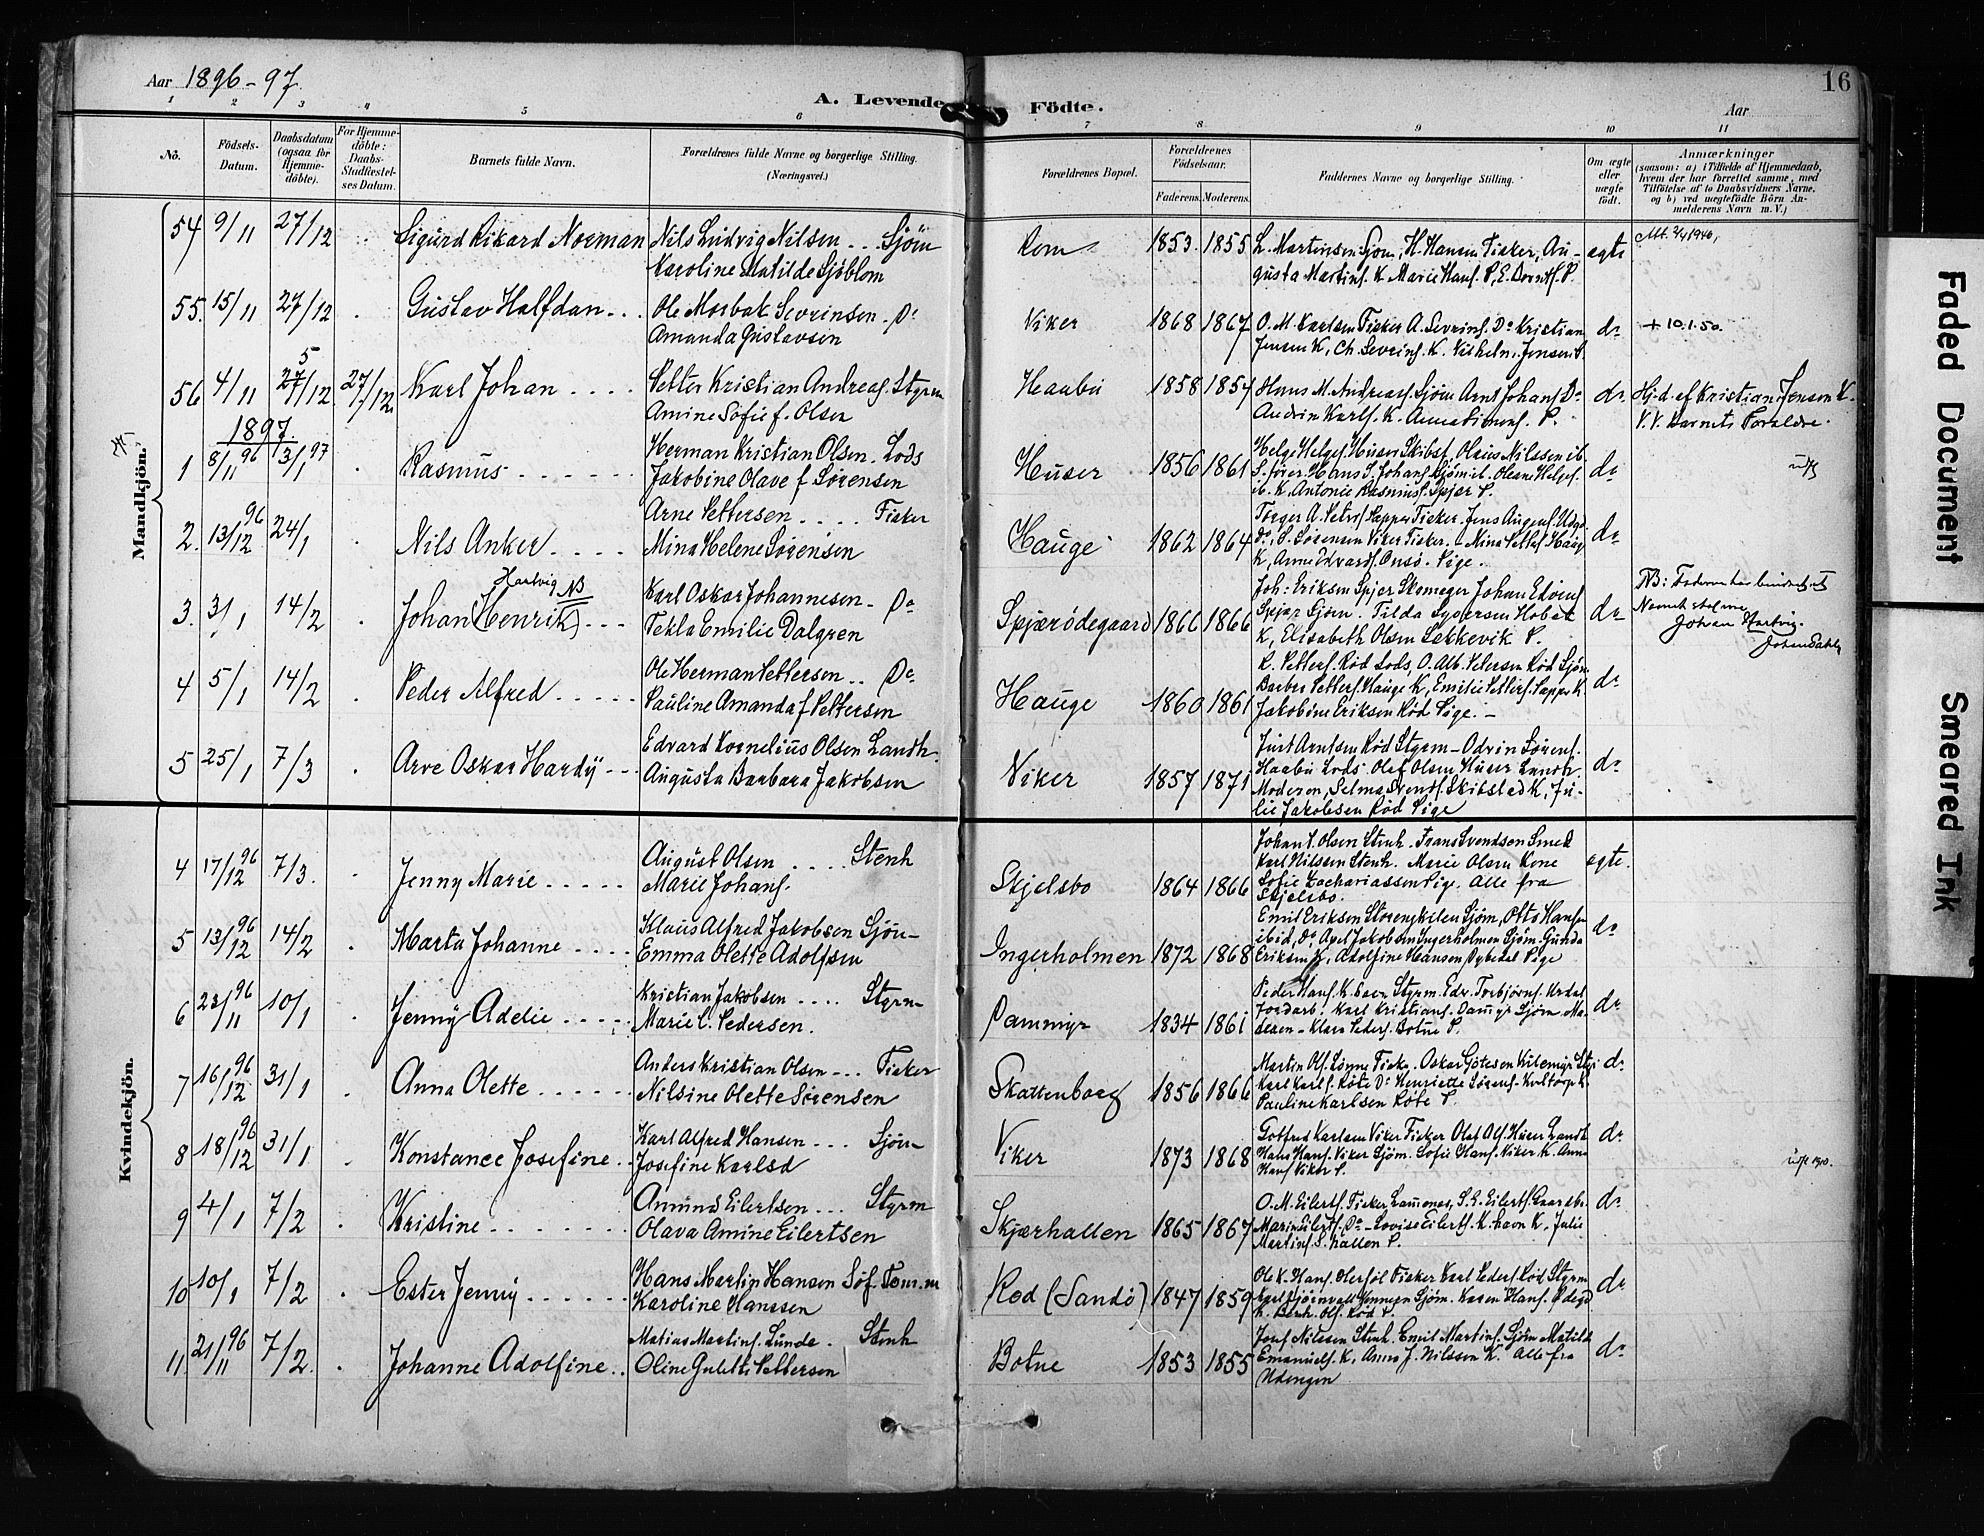 Aar 1896-97
A. Levende Födte.
Aar
16
1 2 3 4 5 6 7 8 9 10 11
No.
Födsels-Datum.
Daabsdatum (ogsaa for Hjemme-döbte).
For Hjemme-döbte: Daabs-Stadfæstel-ses Datum.
Barnets fulde Navn.
Forældrenes fulde Navne og borgerlige Stilling.
(Næringsvei.)
Forældrenes Bopæl.
Forældrenes Födselsaar.
Faderens. Moderens.
Faddernes Navne og borgerlige Stilling.
Om ægte eller uægte födt.
Anmærkninger
(saasom: a) i Tilfælde af Hjemmedaab,
hvem der har forrettet samme, med
Tilföielse af to Daabsvidners Navne,
og b) ved uægtefödte Börn An-
melderens Navn m. V.)
Mandkjön.
54 9/11 27/12 Sigurd Rikard Norman Nils Ludvig Nilsen Sjöm
Karoline Matilde Sjöblom
Rom 1853 1855 L. Martinsen Sjöm, H. Hansen Fisker, Au-
gusta Martins. K. Marie Hans. P., E. P. ægte
55. 15/11 27/12 Gustav Halfdan Ole Morbak Sevrinsen Do
Amanda Gustavsen
Viker 1868 1867 O. M. Karlsen Fisker A. Sevrins. Do Kristian
Jensen K, Ch. Sevrins. K. Vilhelm. Jensen do
+ 10.1.50.
56 4/11 5/12 27/12 Karl Johan Petter Kristian Andreas. Styrm
Amine Sofie f. Olsen
Haabu 1858 1854 Hans M. Andreas. Sjöm Arnt Johans. Do
Karls. K. Anna P. do
Hj.d. af Kristian Jensen K.
V.V. Barnets Forældre.
1897
1 8/11 96 3/1 97 Rasmus Herman Kristian Olsen Lods
Jakobine Olave f Sörensen
Huser 1856 1861 Helge Helges. Huser Skibsf. Olaus Nilssen ib.
S. förer. Hans S. Johans. Sjöm ib. Oleane Helges.
ib. K. Antonie Rasmus. Spjær P. do
2. 13/12 96 24/1 Nils Anker Arne Pettersen Fisker
Mina Helene Sörensen
Hauge 1862 1864 Torger A. Petters. Papper Fisker. Jens Augens.
Do, S. Sörensen Viker Fisker. Mina Petters. Haug
K, Anne Edvards. Onsö. Pige. do
3. 3/1 14/2 Johan (Henrik) Hartvig NB Karl Oskar Johannesen Do
Tekla Emilie Dalgren
Spjærödegaard 1866 1866 Joh. Eriksen Spjær Skomager Johan Edvins.
Spjær Sjöm. Tilda Syversen
K, Elisabeth Olsen Lekkevik P. do
NB: Faderen har
Navnet
Johan Hartvig.
4 5/1 14/2 Peder Alfred Ole Herman Pettersen Do
Pauline Amanda f Pettersen
Hauge 1860 1861 R. Petters. Röd Lods, O. Alb. Petersen Röd Sjöm
Barbro Petters. Hauge K, Emilie Petters. Papper K.
Jakobine Eriksen Röd Pige. do
5 25/1 7/3 Arve Oskar Hardy Edvard Kornelius Olsen Landh.
Augusta Barbara Jakobsen
Viker 1857 1871 Just Arntsen Röd Styrm. Odvin Sörens.
Haabu Lods Olaf Olsen Huser Landh.
Moderen, Selma Svends. Skibstad K, Ju-
lie Jakobsen Röd Pige do
Kvindekjön.
4 17/12 96 7/3. Jenny Marie August Olsen Stenh
Marie Johans.
Skjelsbo 1864 1866 Johan Olsen Stenh. Frans Svendsen Smed
Karl Nilssen Stenh. Marie Olsen Kone
Sofie Zachariassen Pige. Alle fra
Skjelsbo. ægte.
5 13/12 96 14/2 Marta Johanne Klaus Alfred Jakobsen Sjöm
Emma Olette Adolfsen
Ingerholmen 1872 1868 Emil Eriksen Storengkilen Sjöm, Otto Hansen
ibid, Do Axel Jakobsen Ingerholmen Sjöm. Gunda
Eriksen K, Adolfine Hansen Dybedal Pige do
6 23/11 96 10/1 Jenny Adelie Kristian Jakobsen Styrm
Marie C. Pedersen.
Dammyr 1834 1861 Peder Hans. K. Havn Styrm. Edv. Torbjörns.
Jordarb. Karl Kristians. Dammyr Sjöm. Mo-
deren Klara Peders. Botne P. do
7 16/12 96 31/1 Anna Olette Anders Kristian Olsen Fisker
Nilsine Olette Sörensen
Skattenborg 1856 1866 Martin Ols. Lönne Fisker. Oskar
Karl Karls. Röte Do Henriette Sörens. K.
Pauline Karlsen Röte P. do
8 18/12 96 31/1 Konstance Josefine Karl Alfred Hansen Sjöm
Josefine Karlsd
Viker 1873 1868 Gotfred Karlsen Viker Fisker Olaf Ols. Huser Landh
Hans Hans. Viker Sjöm. Sofie Hans. Viker K. Anna
Hans. Viker P. do
9 4/1 7/2 Kristine Amund Eilertsen Styrm
Olava Amine Eilertsen
Skjærhallen 1865 1867 O. M. Eilerts. Fisker S. E. Eilerts.
Marie Eilerts. Do Lovise Eilerts. K. Havn K. Julie
Martins. S. hallen P. do
10 10/1 7/2 Ester Jenny Hans Martin Hansen Söf. Tom.m
Karoline Hanssen
Röd (Sandö) 1847 1859 Ole K. Hans. Fisker Karl Peders. Röd Styrm
Sjöm. Karen Hans.
K. Berh. Ols. Röd P. do
11 21/11 96 7/2. Johanne Adolfine Matias Martins. Lunde. Stenh
Oline Pettersen
Botne 1853 1855 Josef Nilssen Stenh. Emil Martins. Sjöm Matilde
Emanuels. K, Anna J. Nilssen K. Alle fra
Udengen do
Faded Document
Smeared Ink